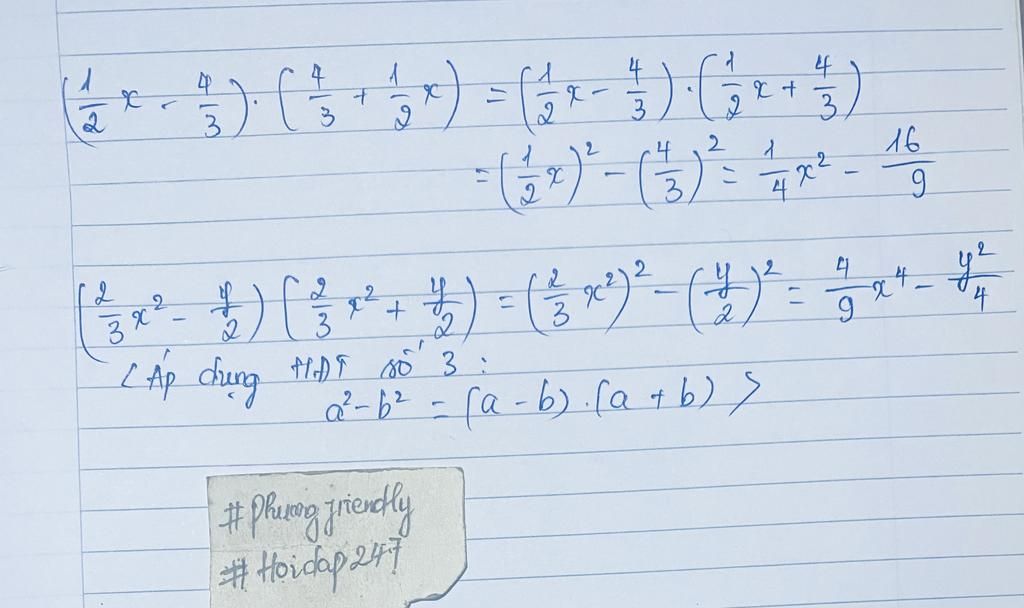 (1/2 x - 4/3) . (4/3 + 1/2 x) = (1/2 x - 4/3) . (1/2 x + 4/3)
= (1/2 x)² - (4/3)² = 1/4 x² - 16/9
(2/3 x² - y/2) (2/3 x² + y/2) = (2/3 x²)² - (y/2)² = 4/9 x⁴ - y²/4
< Áp dụng HĐT số 3 :
a² - b² = (a - b) . (a + b) >
#Phuongfriendly
#Hoidap247